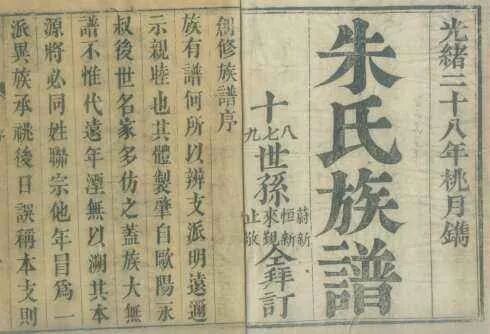 光緒二十八年桃月鐫
朱氏族譜
十八七九世孫
蔚新恒新來覲止敬
仝拜訂
創修族譜序
族有譜何所以辨支派明遠邇
示親睦也其體製肇自歐陽永
叔後世名家多仿之蓋族大無
譜不惟代遠年湮無以溯其本
源將必同姓聯宗他年冒為一
派異族承祧後日誤稱本支則